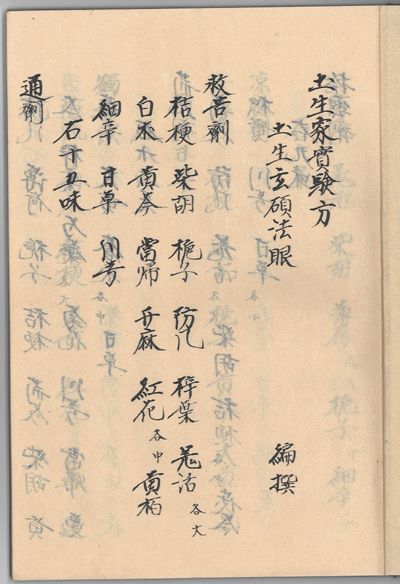 土生家實驗方
土生玄碩法眼 編撰
救苦劑
桔梗 柴胡 梔子 防风 梓葉 羌活 各大
白朮 黄芩 當帰 升麻 紅花 各中 黄柏
細辛 甘草 川芎
右十五味
通劑